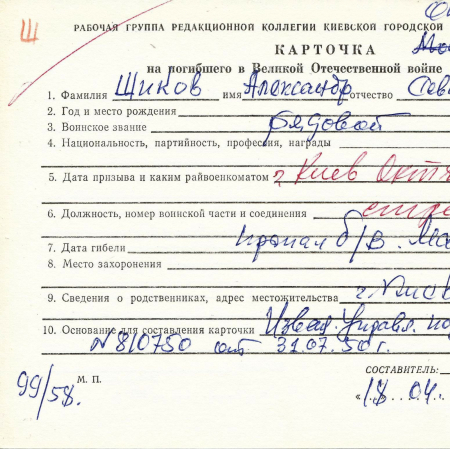 Щ
РАБОЧАЯ ГРУППА РЕДАКЦИОННОЙ КОЛЛЕГИИ КИЕВСКОЙ ГОРОДСКОЙ
КАРТОЧКА
на погибшего в Великой Отечественной войне
1. Фамилия Щиков имя Александр отчество
2. Год и место рождения
3. Воинское звание рядовой
4. Национальность, партийность, профессия, награды
5. Дата призыва и каким райвоенкоматом г. Киев Октя
6. Должность, номер воинской части и соединения стре
7. Дата гибели пропал б/в.
8. Место захоронения
9. Сведения о родственниках, адрес местожительства г.
10. Основание для составления карточки Извещ. Управл.
N 810750 от 31.07.50 г.
СОСТАВИТЕЛЬ:
99/58. М. П.
"18.04.